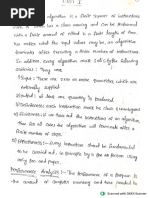 UNIT I
algorithm is a finite sequence of instructions
has a clear meaning and can be performed
with a finite amount of effort in a finite length of time.
No matter what the input values may be, an algorithm
terminates after executing a finite number of instructions
In addition, every algorithm must satisfy the following
criteria: They are
1) Input: There are zero or more quantities, which are
externally supplied
2) Output: at least one quantity is produced.
3) Definiteness: each instruction must be clear & unambiguous
4) Finiteness: if we trace out the instructions of an algorithm
then for all cases the algorithm will terminate after
finite number of steps.
5) Effectiveness: Every instruction should be fundamental
to be carried out, in principle by a person using
only pen and paper.
Performance Analysis: The performance of a program is
the amount of computer memory and time needed to
Scanned with OKEN Scanner